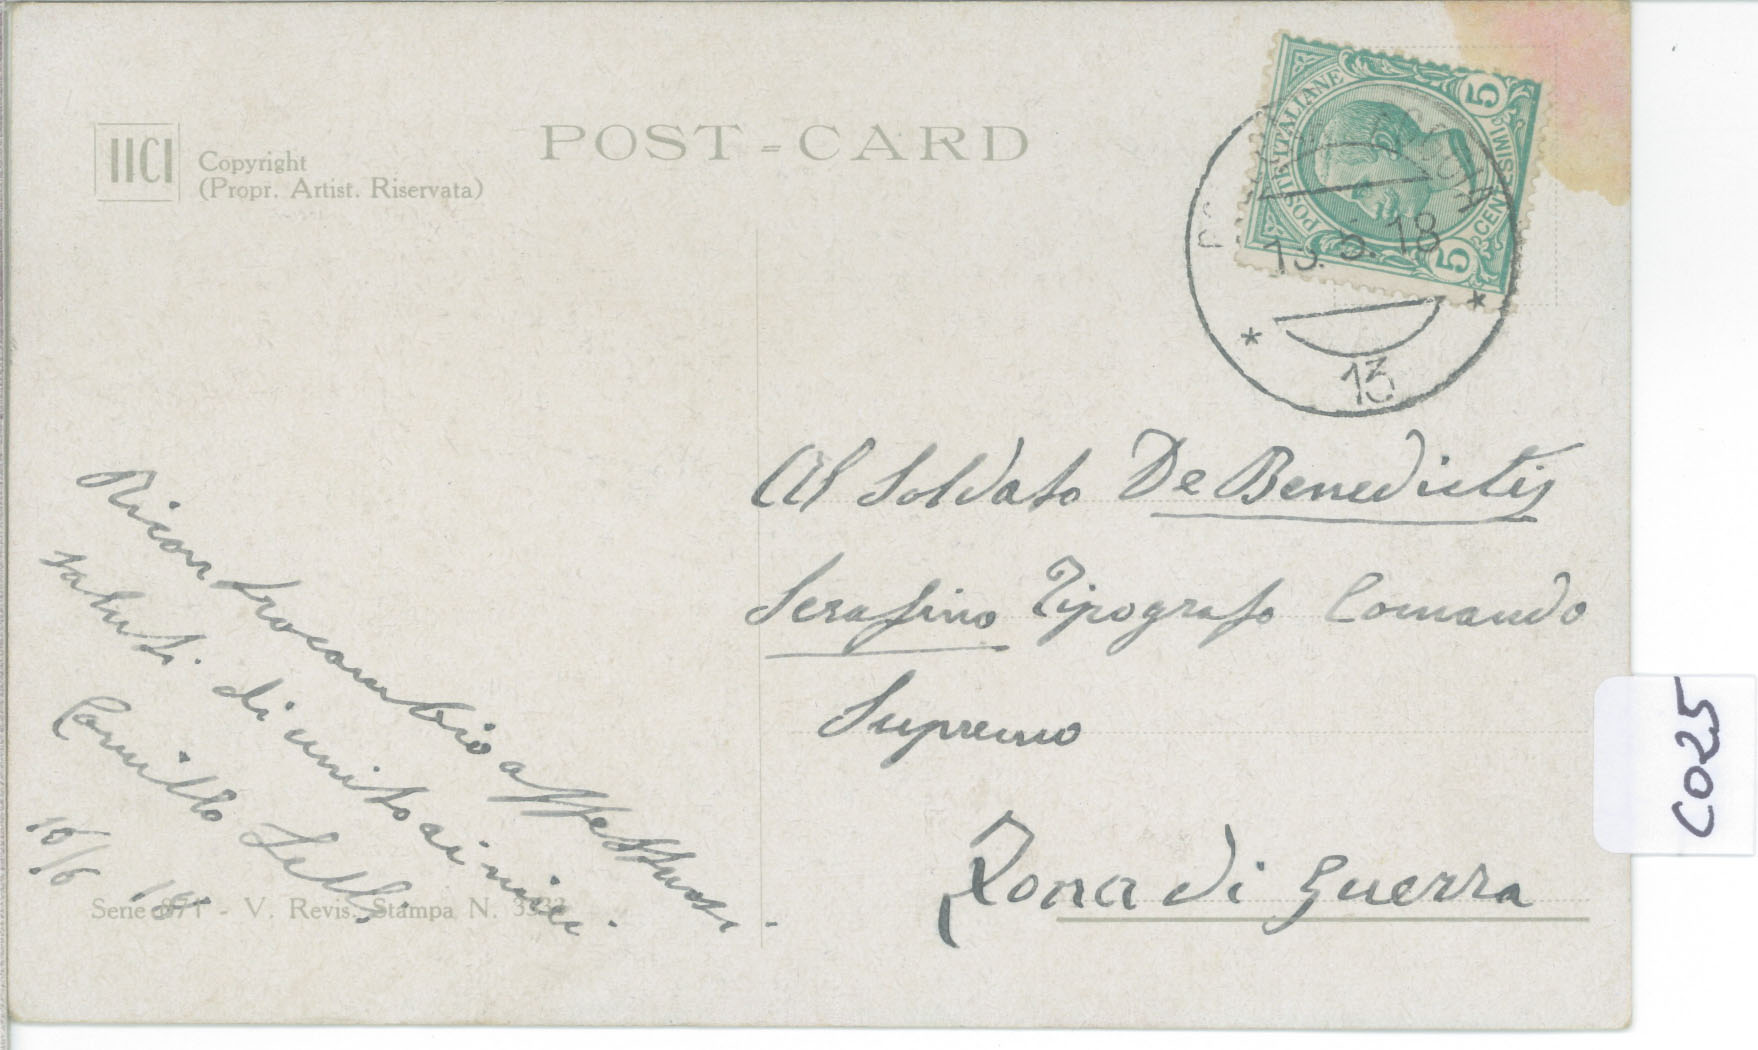 IICI
Copyright
(Propr. Artist. Riservata)
POST-CARD
POSTE ITALIANE
5 CENTESIMI 5
POSTA
13.6.18
* *
13
Al Soldato De Benedictis
Serafino Tipografo Comando
Supremo
Zona di Guerra
Ricontrocambio affettuosi
saluti di unito ai miei
Camillo
16/6 18
Serie 871 - V. Revis. Stampa N. 3332
C025